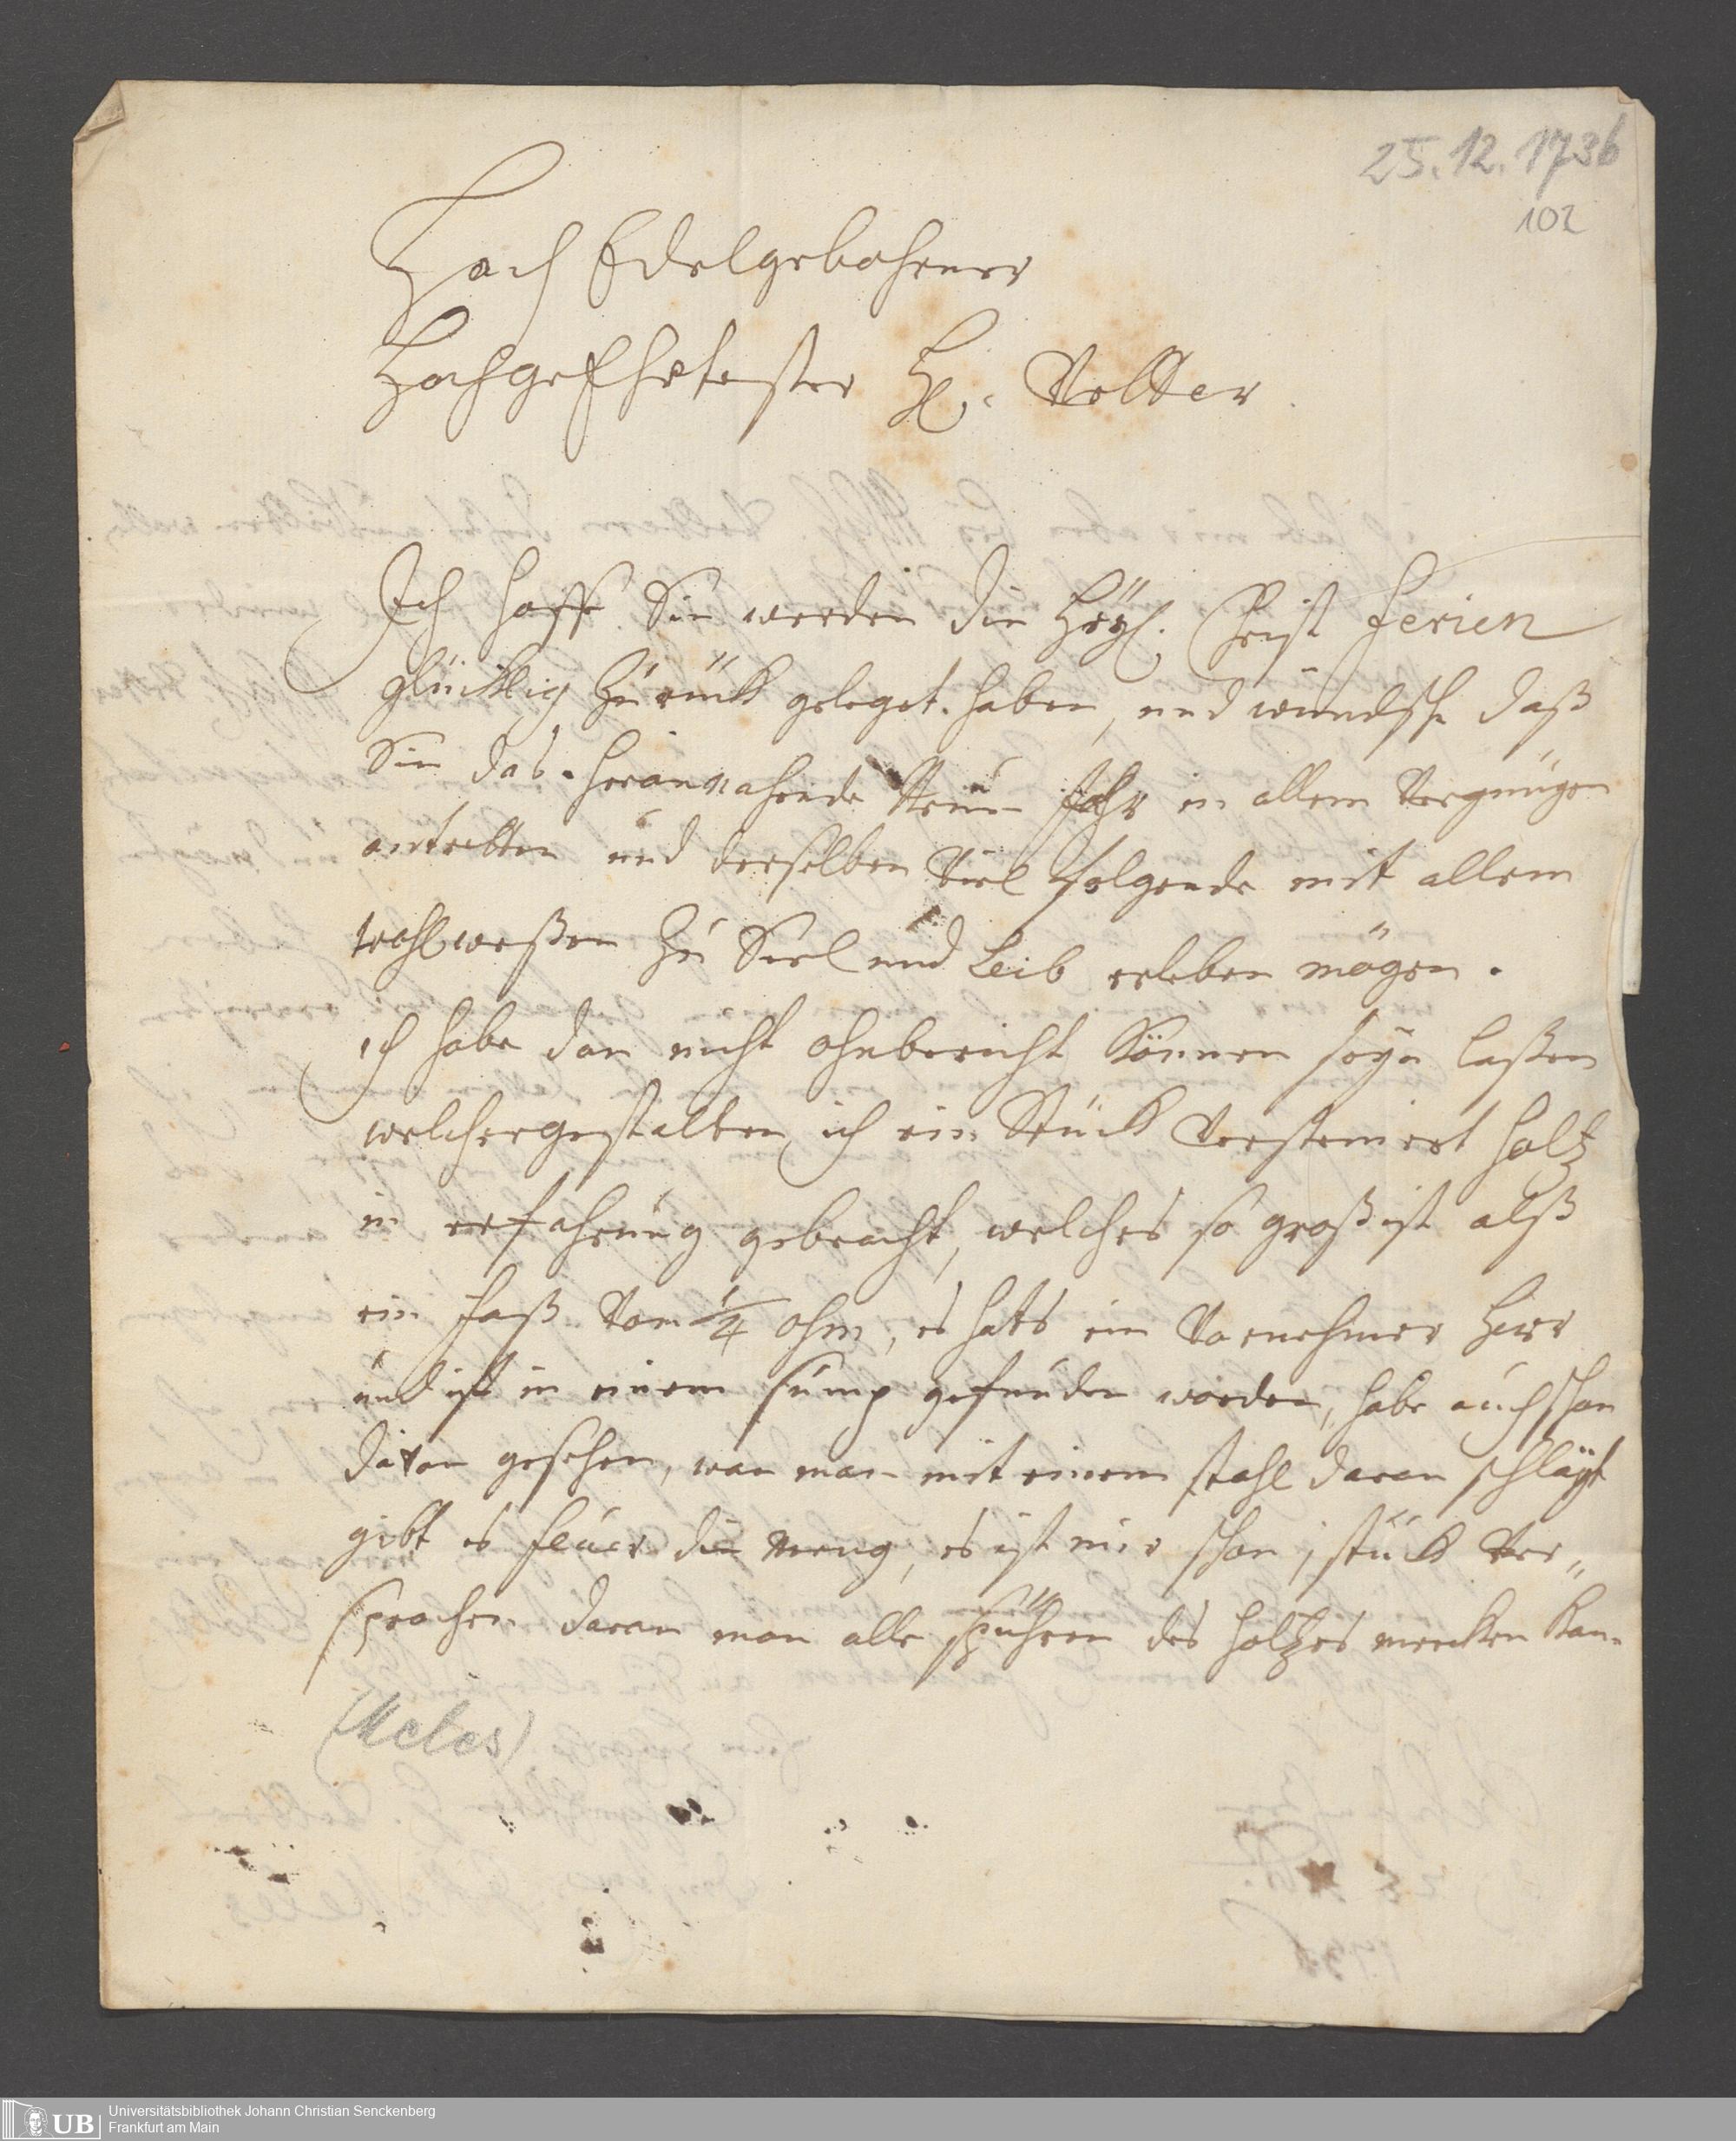 25.12.1736
102
Hoch Edelgebohrner
Hochgeehrtester H. Vetter
Ich hoffe Sie werden die Heÿl. Christ ferien
glücklig zurück geleget haben, und wündsche daß
Sie das herannahende Neue Jahr in allem Vergnügen
antretten und derselben Viel folgende mit allem
wohlweßen zu Seel und Leib erleben mögen.
ich habe dan nicht ohnbericht können seyn laßen
welchergestalten ich ein Stück Versteinert holtz
in erfahrung gebracht, welches so groß ist alß
ein faß von 1/4 ohm, es hats ein Vornehmer Herr
und ist in einem sump gefunden worden, habe auch schon
davon gesehen, wan man mit einem stahl daran schlägt
gibt es feuer die meng, es ist mir schon 1 stück Ver„
sprochen daran man alle spühren des holtzes mercken kan.
(Meles)
UB
Universitätsbibliothek Johann Christian Senckenberg
Frankfurt am Main